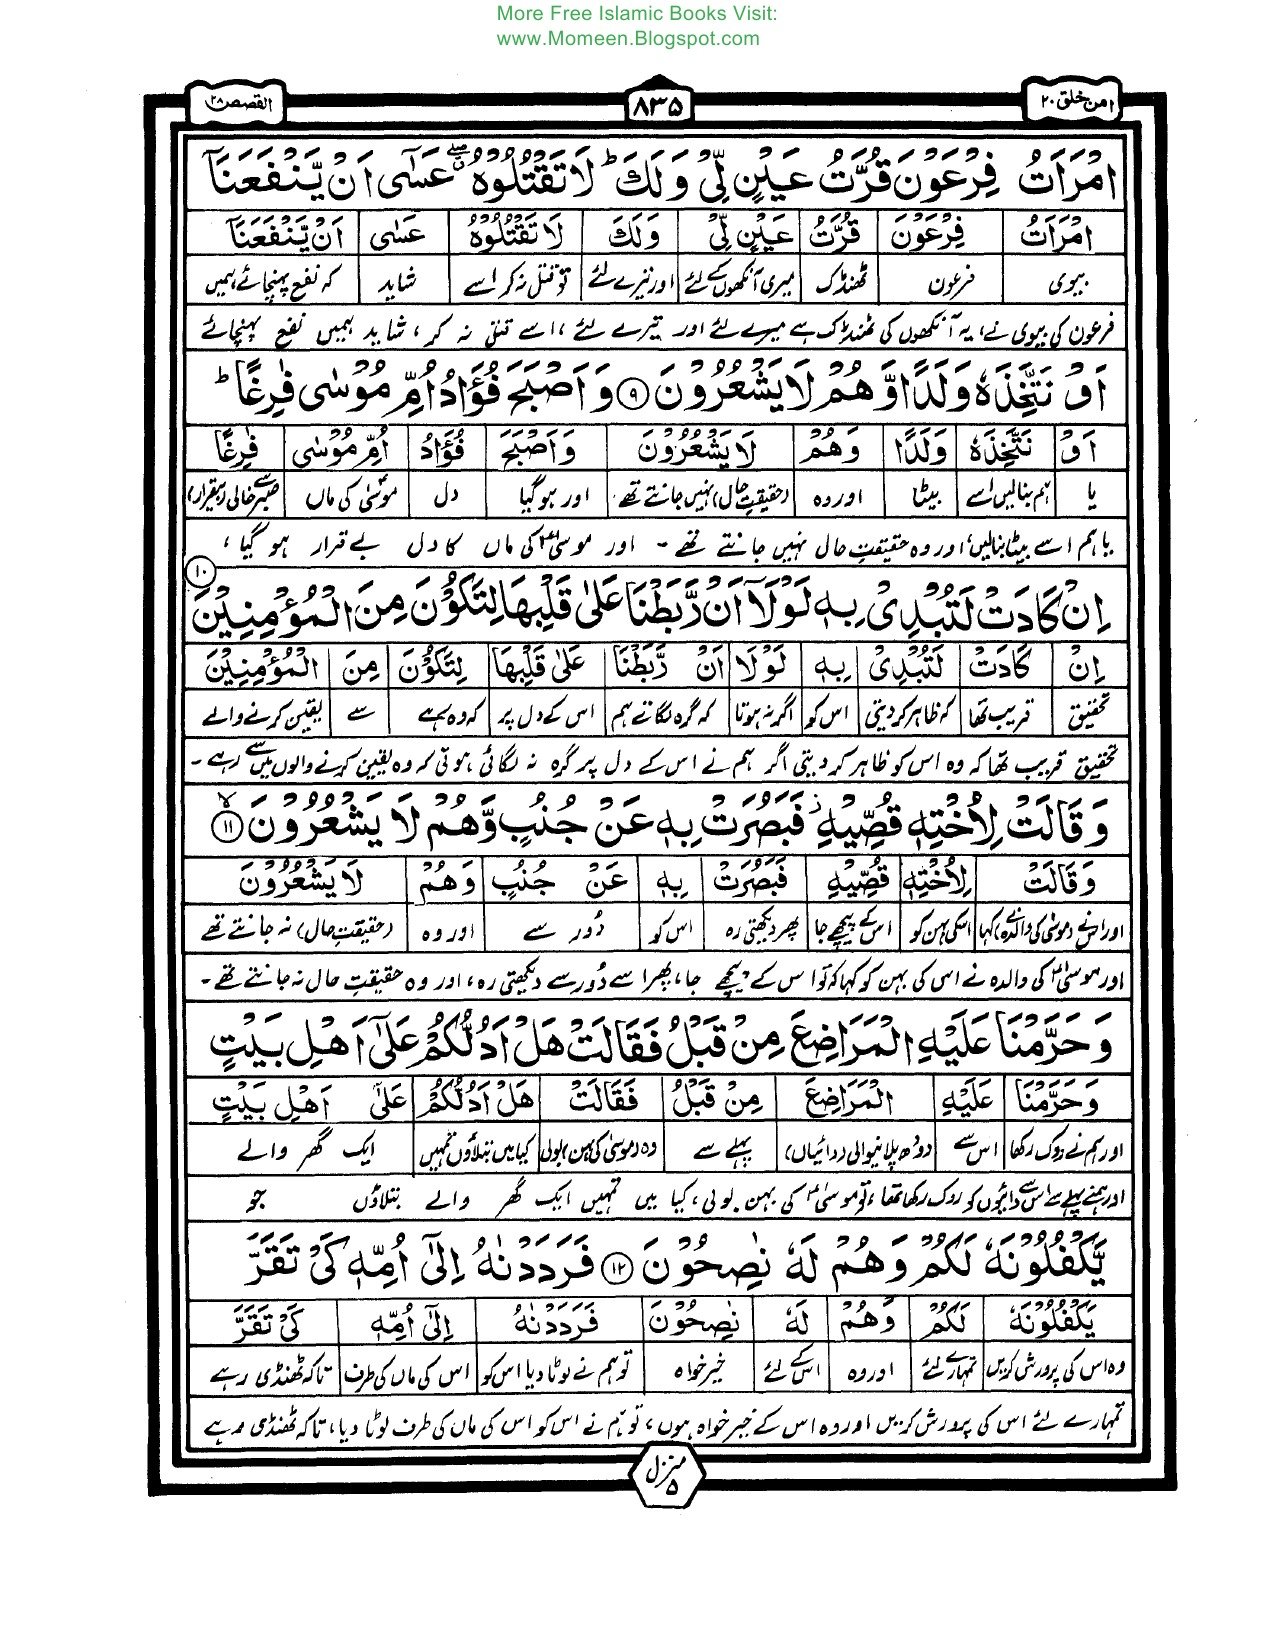 More Free Islamic Books Visit:
www.Momeen.Blogspot.com
امن خلق ۲۰ ۸۳۵ القصص ۲۸
امْرَاَتُ فِرْعَوْنَ قُرَّتُ عَيْنٍ لِّيْ وَلَكَ ؕ لَا تَقْتُلُوْهُ ۖ عَسٰٓى اَنْ يَّنْفَعَنَاۤ
امْرَاَتُ فِرْعَوْنَ قُرَّتُ عَيْنٍ لِّيْ وَلَكَ لَا تَقْتُلُوْهُ عَسٰٓى اَنْ يَّنْفَعَنَاۤ
بیوی فرعون ٹھنڈک میری آنکھوں کے لئے اور تیرے لئے تو قتل نہ کر اسے شاید کہ نفع پہنچائے ہمیں
فرعون کی بیوی نے، یہ آنکھوں کی ٹھنڈک ہے میرے لئے اور تیرے لئے، اسے قتل نہ کر، شاید ہمیں نفع پہنچائے
اَوْ نَتَّخِذَهٗ وَلَدًا وَّهُمْ لَا يَشْعُرُوْنَ ۹ وَاَصْبَحَ فُؤَادُ اُمِّ مُوْسٰى فٰرِغًا ؕ
اَوْ نَتَّخِذَهٗ وَلَدًا وَهُمْ لَا يَشْعُرُوْنَ وَاَصْبَحَ فُؤَادُ اُمِّ مُوْسٰى فٰرِغًا
یا ہم بنالیں اسے بیٹا اور وہ (حقیقتِ حال) نہیں جانتے تھے اور ہو گیا دل موسیٰؑ کی ماں صبر سے خالی (بیقرار)
یا ہم اسے بیٹا بنالیں، اور وہ حقیقتِ حال نہیں جانتے تھے - اور موسیٰؑ کی ماں کا دل بے قرار ہو گیا،
اِنْ كَادَتْ لَتُبْدِيْ بِهٖ لَوْلَاۤ اَنْ رَّبَطْنَا عَلٰى قَلْبِهَا لِتَكُوْنَ مِنَ الْمُؤْمِنِيْنَ ۱۰
اِنْ كَادَتْ لَتُبْدِيْ بِهٖ لَوْلَا اَنْ رَّبَطْنَا عَلٰى قَلْبِهَا لِتَكُوْنَ مِنَ الْمُؤْمِنِيْنَ
تحقیق قریب تھا کہ ظاہر کر دیتی اس کو اگر نہ ہوتا کہ گرہ لگاتے ہم اس کے دل پر کہ وہ رہے سے یقین کرنے والے
تحقیق قریب تھا کہ وہ اس کو ظاہر کر دیتی اگر ہم نے اس کے دل پر گرہ نہ لگائی ہوتی کہ وہ یقین کرنے والوں میں سے رہے -
وَقَالَتْ لِاُخْتِهٖ قُصِّيْهِ ۫ فَبَصُرَتْ بِهٖ عَنْ جُنُبٍ وَّهُمْ لَا يَشْعُرُوْنَ ۱۱ لا
وَقَالَتْ لِاُخْتِهٖ قُصِّيْهِ فَبَصُرَتْ بِهٖ عَنْ جُنُبٍ وَهُمْ لَا يَشْعُرُوْنَ
اور اس نے (موسیٰ کی والدہ نے) کہا اسکی بہن کو اس کے پیچھے جا پھر دیکھتی رہ اس کو دُور سے اور وہ (حقیقتِ حال) نہ جانتے تھے
اور موسیٰؑ کی والدہ نے اس کی بہن کو کہا کہ تو اس کے پیچھے جا، پھر اسے دُور سے دیکھتی رہ، اور وہ حقیقتِ حال نہ جانتے تھے -
وَحَرَّمْنَا عَلَيْهِ الْمَرَاضِعَ مِنْ قَبْلُ فَقَالَتْ هَلْ اَدُلُّكُمْ عَلٰٓى اَهْلِ بَيْتٍ
وَحَرَّمْنَا عَلَيْهِ الْمَرَاضِعَ مِنْ قَبْلُ فَقَالَتْ هَلْ اَدُلُّكُمْ عَلٰٓى اَهْلِ بَيْتٍ
اور ہم نے روک رکھا اس سے دودھ پلانیوالی (دائیاں) پہلے سے وہ (موسیٰ کی بہن) بولی کیا میں بتلاؤں تمہیں ایک گھر والے
اور ہم نے پہلے سے اس سے دائیوں کو روک رکھا تھا، تو موسیٰؑ کی بہن بولی، کیا میں تمہیں ایک گھر والے بتلاؤں جو
يَّكْفُلُوْنَهٗ لَكُمْ وَهُمْ لَهٗ نٰصِحُوْنَ ۱۲ فَرَدَدْنٰهُ اِلٰٓى اُمِّهٖ كَيْ تَقَرَّ
يَكْفُلُوْنَهٗ لَكُمْ وَهُمْ لَهٗ نٰصِحُوْنَ فَرَدَدْنٰهُ اِلٰٓى اُمِّهٖ كَيْ تَقَرَّ
وہ اس کی پرورش کریں تمہارے لئے اور وہ اس کے لئے خیر خواہ تو ہم نے لوٹا دیا اس کو اس کی ماں کی طرف تاکہ ٹھنڈی رہے
تمہارے لئے اس کی پرورش کریں اور وہ اس کے خیر خواہ ہوں، تو ہم نے اس کو اس کی ماں کی طرف لوٹا دیا، تاکہ ٹھنڈی رہے
منزل ۵